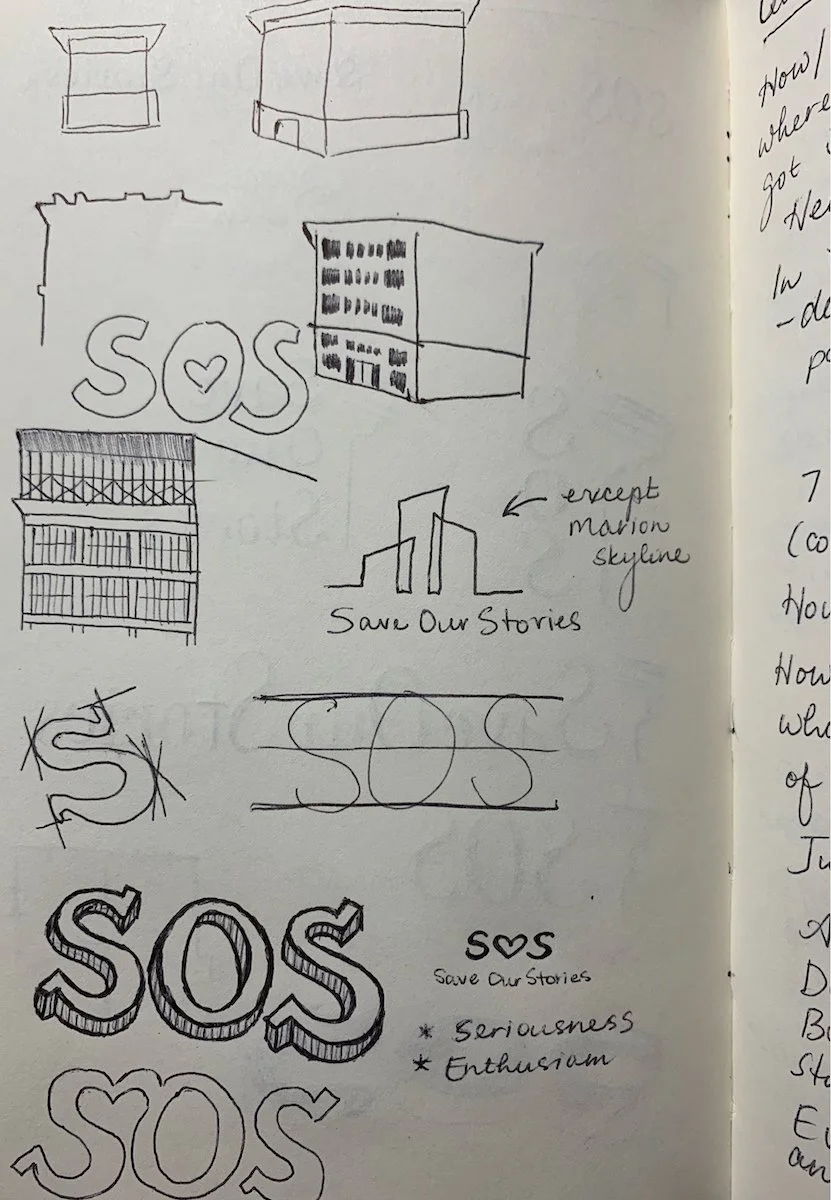 SOS
except
Marion
skyline
Save Our Stories
S
SOS
SOS
S♡S
Save Our Stories
* Seriousness
* Enthusiam
SOS
How/
where
got
In
7
(co
How
How
of